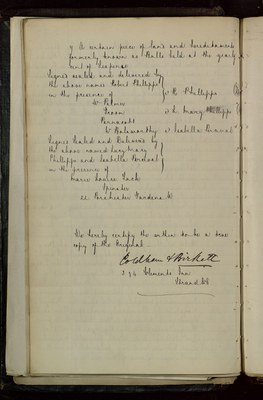 of a certain piece of land and hereditaments
formerly known as Balls held at the yearly
rent of Sixpence
Signed sealed and delivered by
the above named Robert Phillipps
in the presence of
W. Palmer
R Phillipps
L Mary
Penzance
Isabella
Signed Sealed and Delivered by
the above named Lucy Mary
Phillipps and Isabella
in the presence of
Marie Louise
Spinster
22 Porchester Gardens W
We hereby certify the within to be a true
copy of the Original
Coldham & Birkett
3 & 4 Clements Inn
Strand